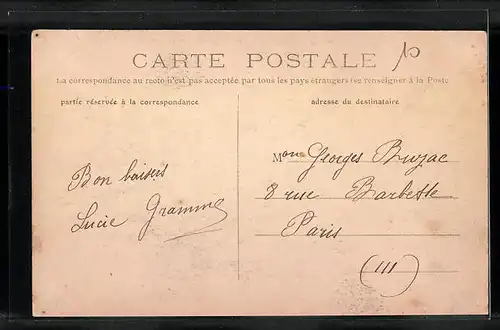 CARTE POSTALE
La correspondance au recto n'est pas acceptée par tous les pays étrangers (se renseigner à la Poste
partie réservée à la correspondance
adresse du destinataire
Bon baisers
Lucie Gramme
Mon Georges Buzac
8 rue Barbette
Paris
(III)